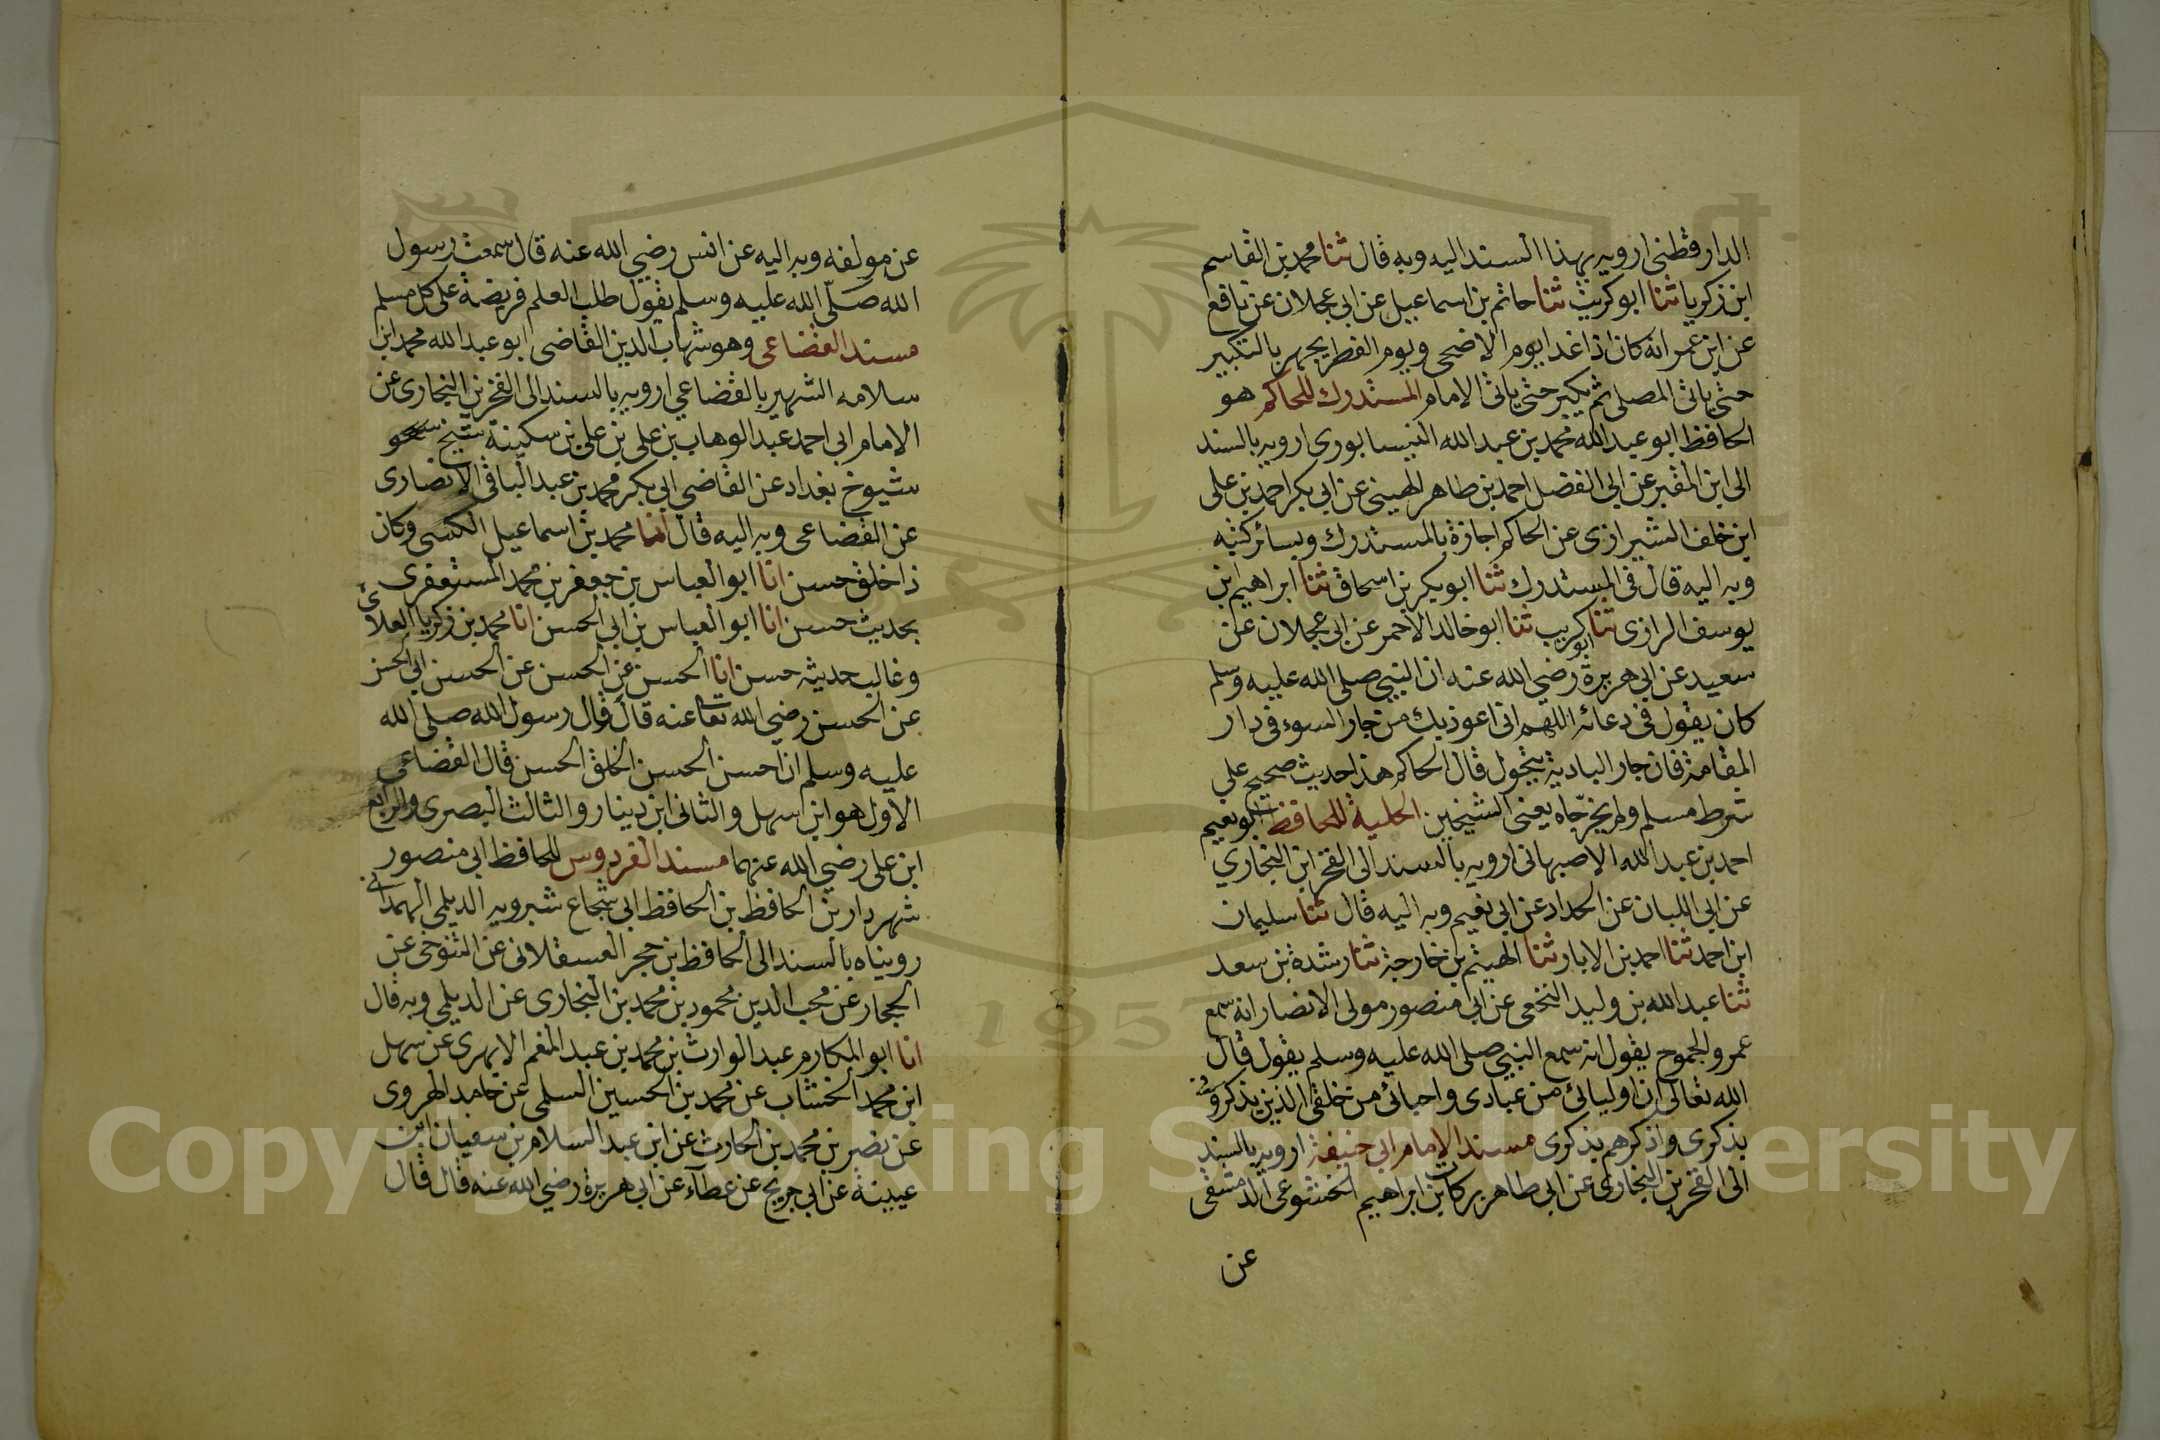 الدارقطني ارويه بهذا السند اليه وبه قال ثنا محمد بن القاسم
ابن زكريا ثنا ابو كريب ثنا حاتم بن اسماعيل عن ابي عجلان عن نافع
عن ابن عمر انه كان اذا غدا يوم الاضحى ويوم الفطر يجهر بالتكبير
حتى ياتي المصلى ثم يكبر حتى ياتي الامام المستدرك للحاكم هو
الحافظ ابو عبد الله محمد بن عبد الله النيسابوري ارويه بالسند
الى ابن المقير عن ابي الفضل احمد بن طاهر الميهني عن ابي بكر احمد بن علي
ابن خلف الشيرازي عن الحاكم اجازة بالمستدرك وبسائر كتبه
وبه اليه قال في المستدرك ثنا ابو بكر بن اسحاق ثنا ابراهيم بن
يوسف الرازي ثنا ابو كريب ثنا ابو خالد الاحمر عن ابي عجلان عن
سعيد عن ابي هريرة رضي الله عنه ان النبي صلى الله عليه وسلم
كان يقول في دعائه اللهم اني اعوذ بك من جار السوء في دار
المقامة فان جار البادية يتحول قال الحاكم هذا حديث صحيح على
شرط مسلم ولم يخرجاه يعني الشيخين الحلية للحافظ ابو نعيم
احمد بن عبد الله الاصبهاني ارويه بالسند الى الفخر ابن البخاري
عن ابي اللبان عن الحداد عن ابي نعيم وبه اليه قال ثنا سليمان
ابن احمد ثنا احمد بن الابار ثنا الهيثم بن خارجة ثنا رشدة بن سعد
ثنا عبد الله بن وليد النخعي عن ابي منصور مولى الانصار انه سمع
عمرو الجموح يقول انه سمع النبي صلى الله عليه وسلم يقول قال
الله تعالى ان اوليائي من عبادي واحبائي من خلقي الذين يذكرون
بذكري واذكرهم بذكري مسند الامام ابي حنيفة ارويه بالسند
الى الفخر بن البخاري عن ابي طاهر بركات بن ابراهيم الخشوعي الدمشقي
عن
عن مولفه وبه اليه عن انس رضي الله عنه قال سمعت رسول
الله صلى الله عليه وسلم يقول طلب العلم فريضة على كل مسلم
مسند القضاعي وهو شهاب الدين القاضي ابو عبد الله محمد ابن
سلامه الشهير بالقضاعي ارويه بالسند الى الفخر بن البخاري عن
الامام ابي احمد عبد الوهاب بن علي بن علي بن سكينة شيخ
شيوخ بغداد عن القاضي ابي بكر محمد بن عبد الباقي الانصاري
عن القضاعي وبه اليه قال انا محمد بن اسماعيل الكسي وكان
ذا خلق حسن انا ابو العباس بن جعفر بن محمد المستغفري
بحديث حسن انا ابو العباس بن ابي الحسن انا محمد بن زكريا العلائي
وغالب حديثه حسن انا الحسن عن الحسن عن الحسن ابي الحسن
عن الحسن رضي الله تعالى عنه قال قال رسول الله صلى الله
عليه وسلم ان احسن الحسن الخلق الحسن قال القضاعي
الاول هو ابن سهل والثاني ابن دينار والثالث البصري والرابع
ابن علي رضي الله عنهما مسند الفردوس للحافظ ابي منصور
شهردار بن الحافظ بن الحافظ ابي شجاع شيرويه الديلمي الهمداني
رويناه بالسند الى الحافظ بن حجر العسقلاني عن التنوخي عن
الحجار عن محب الدين محمود بن محمد بن البخاري عن الديلمي وبه قال
انا ابو المكارم عبد الوارث بن محمد بن عبد المنعم الابهري عن سهل
ابن محمد الخشاب عن محمد بن الحسين السلمي عن حامد الهروي
عن نصر بن محمد بن الحارث عن ابن عبد السلام بن سفيان ابن
عيينة عن ابي جريج عن عطاء عن ابي هريرة رضي الله عنه قال قال
1957
Copyright © King Saud University